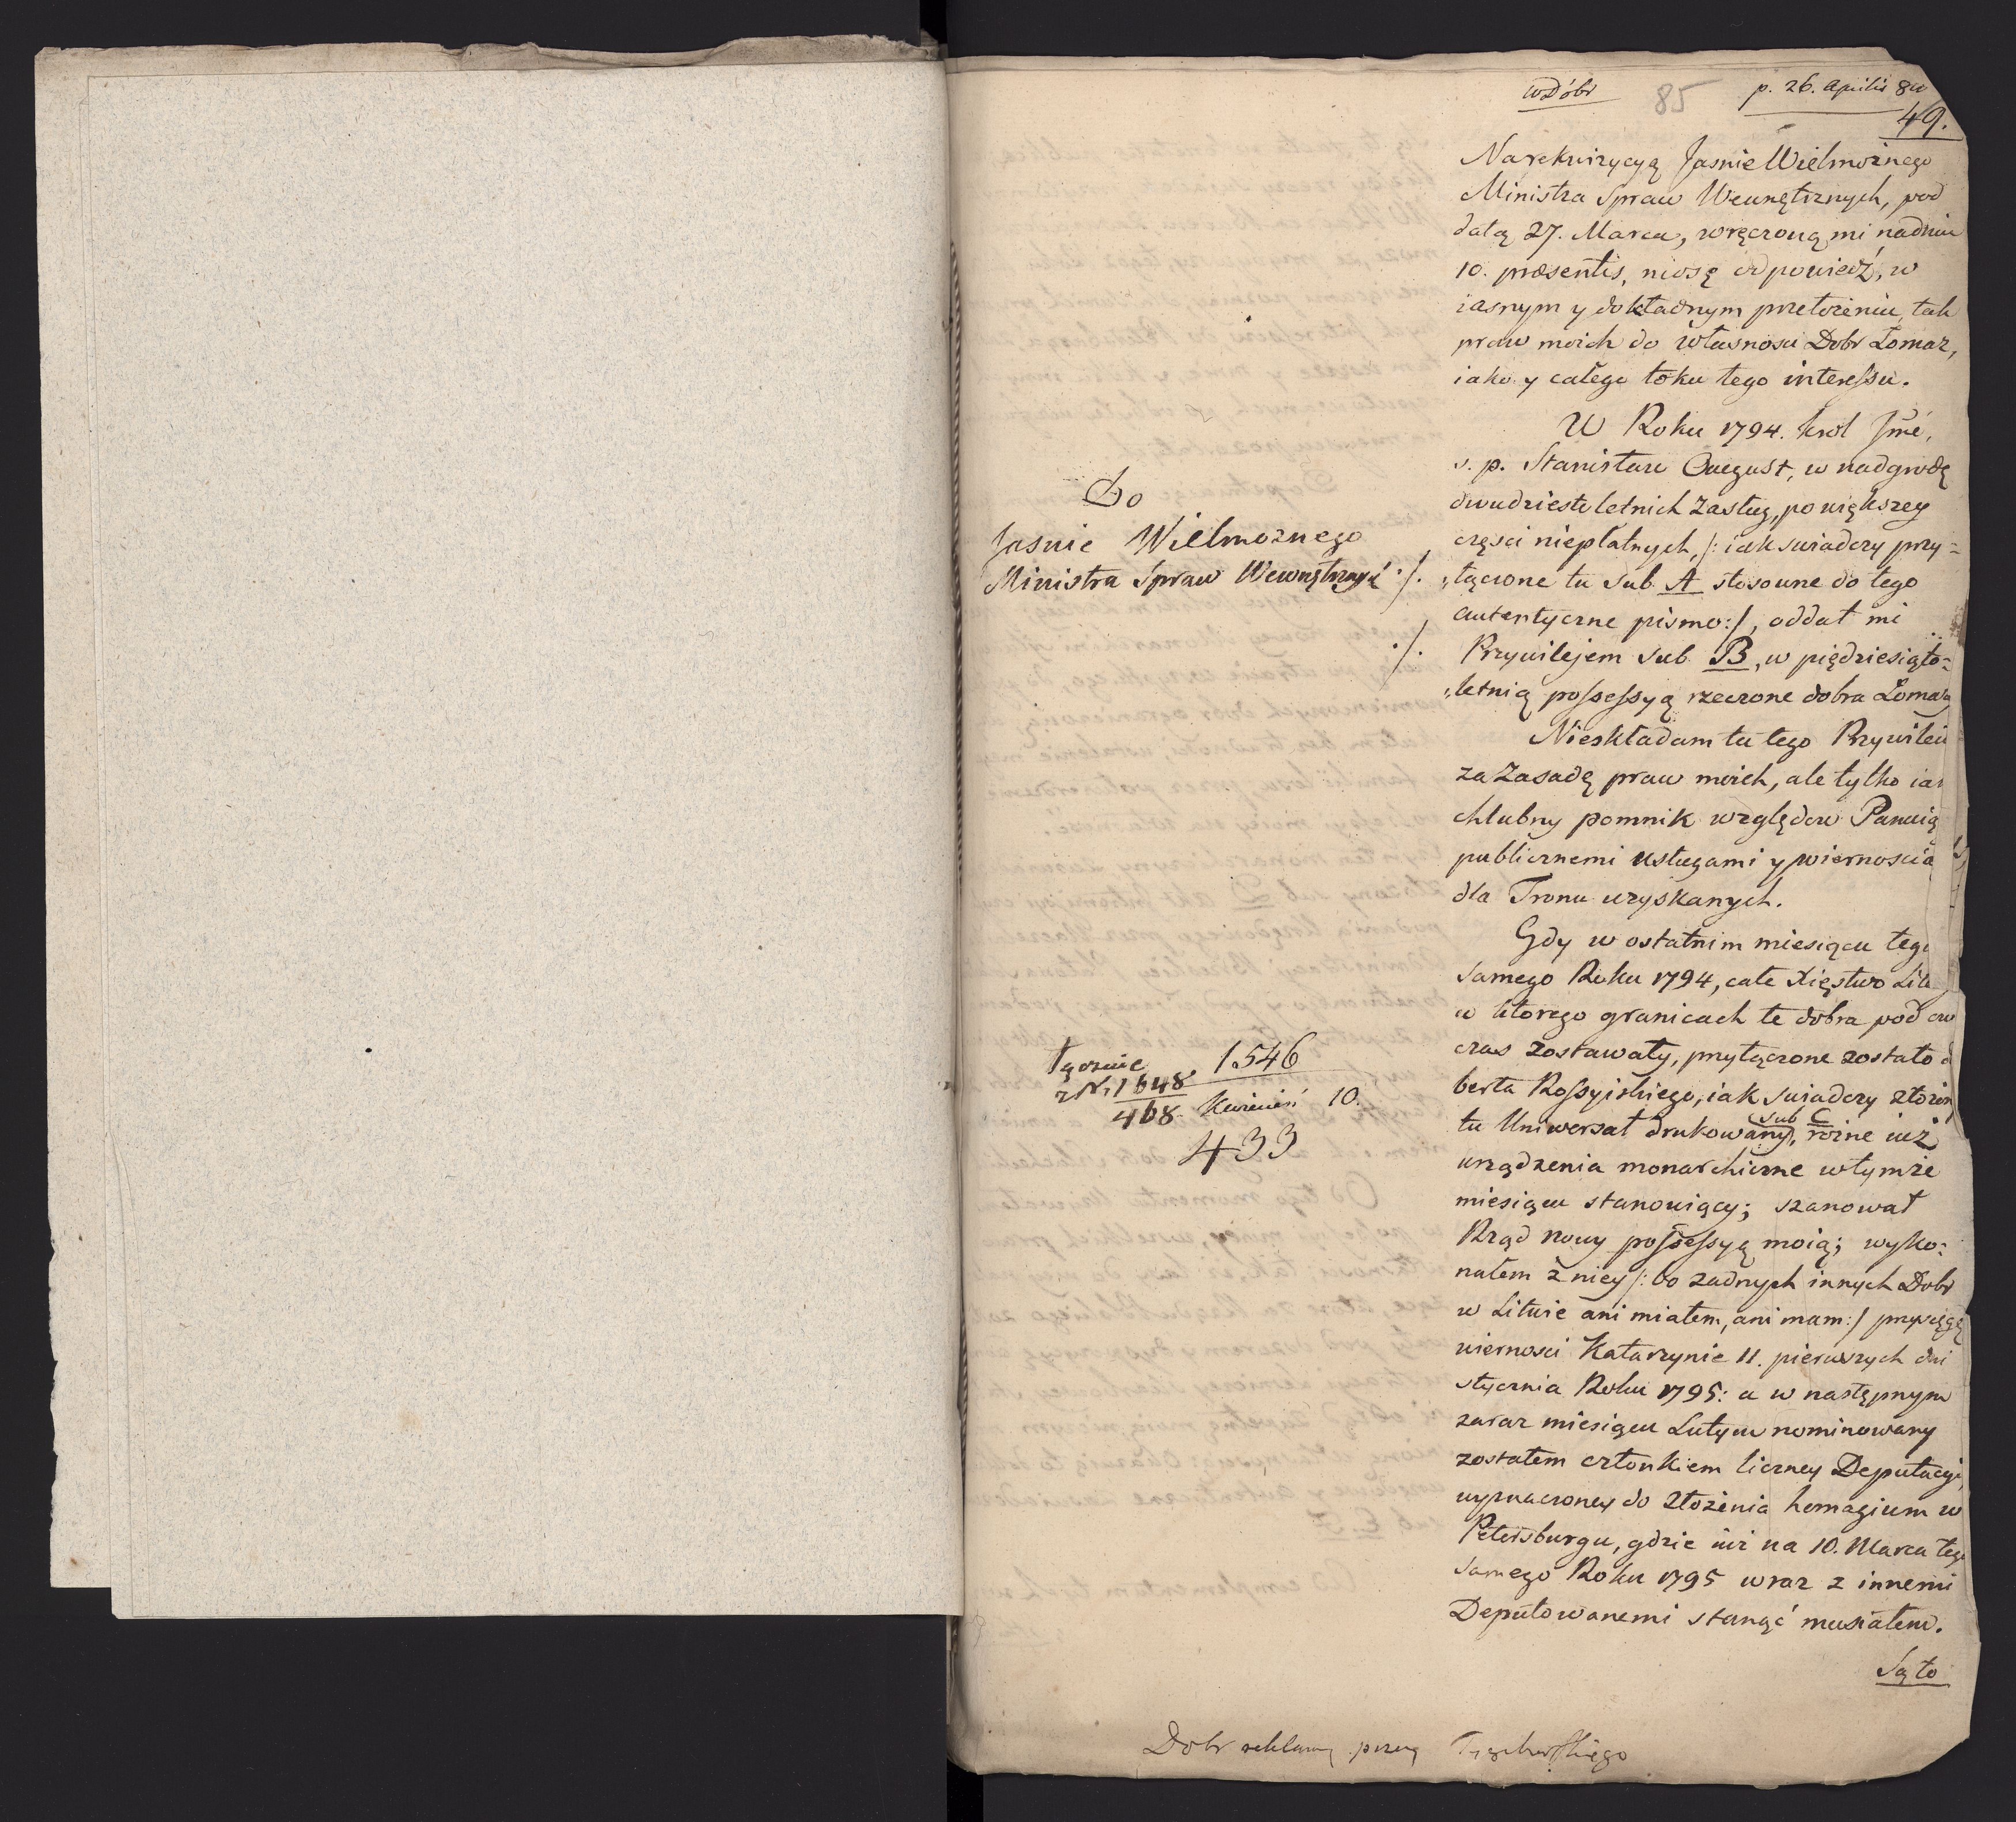 w Dóbr 85 p. 26. Aprilis
49.
Na rekwizycyą Jasnie Wielmoznego
Ministra Spraw Wewnętrznych, pod
datą 27. Marca, wręczoną mi na dniu
10. præsentis, niosę odpowiedź, w
iasnym y dokładnym przełożeniu, tak
praw moich do własnosci Dobr Łomaz,
iako y całego toku tego interessu.
W Roku 1794. krol Jmć,
s. p. Stanisław August, w nadgrodę
dwudziesto letnich zasług, po większey
częsci niepłatnych, /: iak swiadczy przy=
„łączone tu sub A stosowne do tego
autentyczne pismo :/, oddał mi
Przywilejem sub B, w pięćdziesiąto=
„letnią possessyą rzeczone dobra Łomazy
Nieskładam tu tego Przywileiu
za Zasadę praw moich, ale tylko iak
chlubny pomnik względow Panuią
publicznemi usługami y wiernoscią
dla Tronu uzyskanych.
Gdy w ostatnim miesiącu tego
samego Roku 1794, całe Xięstwo Lite
w ktorego granicach te dobra pod ow
czas zostawały, przyłączone zostało d
berła Rossyiskiego, iak swiadczy złożon
tu Uniwersał drukowany sub C, rożne iuż
urządzenia monarchiczne w tymże
miesiącu stanowiący; szanował
Rząd nowy possessyą moią; wyko=
nałem z niey /: bo żadnych innych Dobr
w Litwie ani miałem, ani mam :/ przysięgę
wiernosci Katarzynie II. pierwszych dni
stycznia Roku 1795: a w następnym
zaraz miesiącu Lutym nominowany
zostałem członkiem liczney Deputacyi,
wyznaczoney do złożenia homagium w
Petersburgu, gdzie iuż na 10. Marca tego
samego Roku 1795 wraz z innemi
Deputowanemi stanąć musiałem.
Są to
Do
Jasnie Wielmoznego
Ministra Spraw Wewnętrznych ./.
./.
łącznie 1546
z Nr 1648
468 Kwiecień 10.
433
Dobr reklam przez